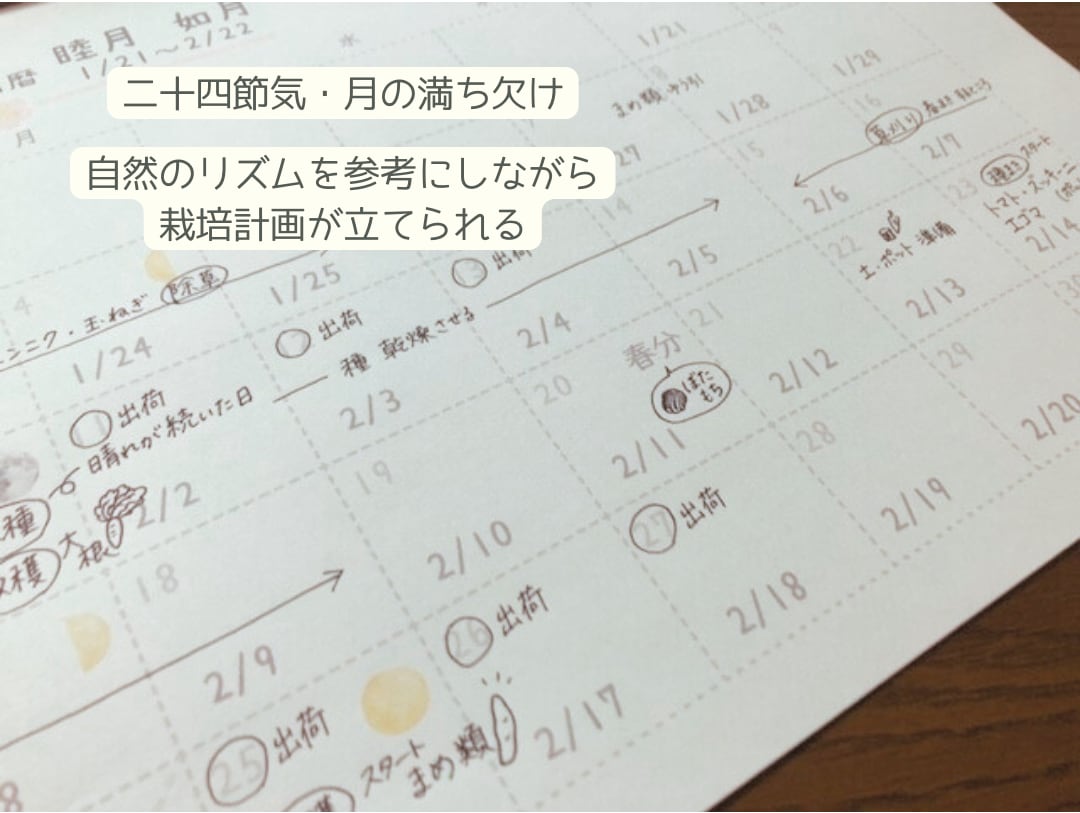 二十四節気・月の満ち欠け
自然のリズムを参考にしながら
栽培計画が立てられる
暦 睦月 如月
1/21～2/22
月
水
1/21
9
まめ類
1/28
16
1/29
草刈り
27
15
2/7
14
2/6
23
種まき スタート
トマト・ズッキーニ
エゴマ
2/14
4
ンニク・玉ねぎ 除草
1/25
出荷
2/5
22
土・ポット準備
1/24
出荷
種 乾燥させる
2/4
21
2/13
30
出荷
晴れが続いた日
2/3
20
春分
ぼたもち
2/12
29
種
2/2
19
2/11
28
2/20
穫 大根
18
2/10
27 出荷
2/19
2/9
26 出荷
2/18
25 出荷
スタート
まめ類
2/17
8